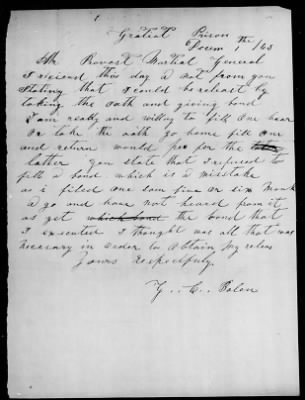 Gratiot Prison
Decem 1 the /63
Mr Provost Martial General
I recieved this day a not from you
Stating that I could be releast by
taking the oath and giving bond
I am ready and willing to fill one hear
or take the oath go home fill one
and return would for the
latter you state that I refused to
fill a bond which is a mistake
as i filled one som five or six Month
a go and have not heared from it
as yet which bond the bond that
I executed I thought was all that was
necesary in order to obtain my releas
Yours Respectfuly.